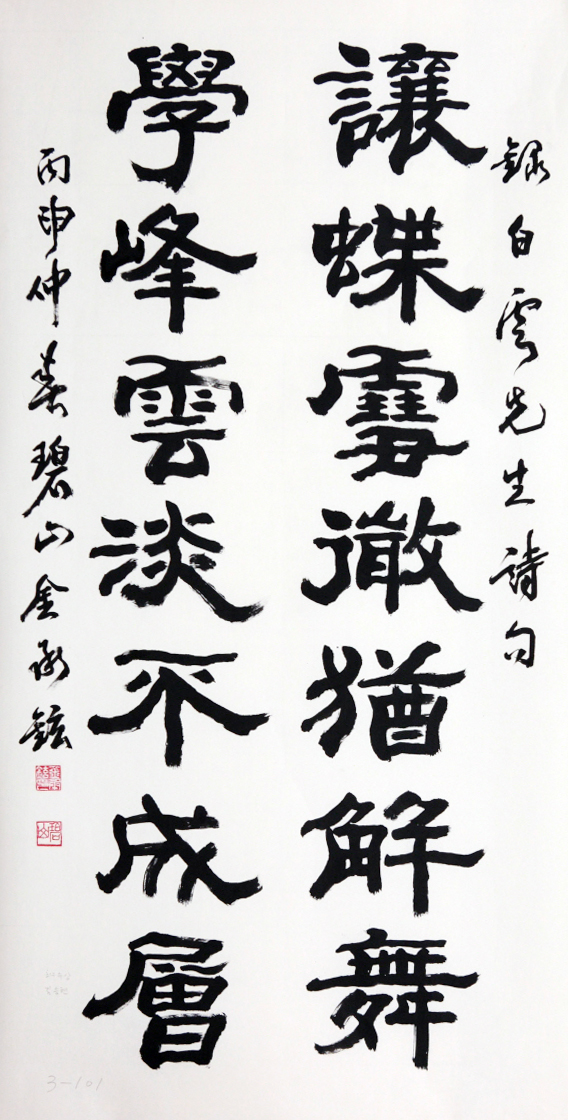 錄白雲先生詩句
讓蝶雪微猶解舞
學峰雲淡不成層
丙申仲春碧山金承鉉
碧山
3-101